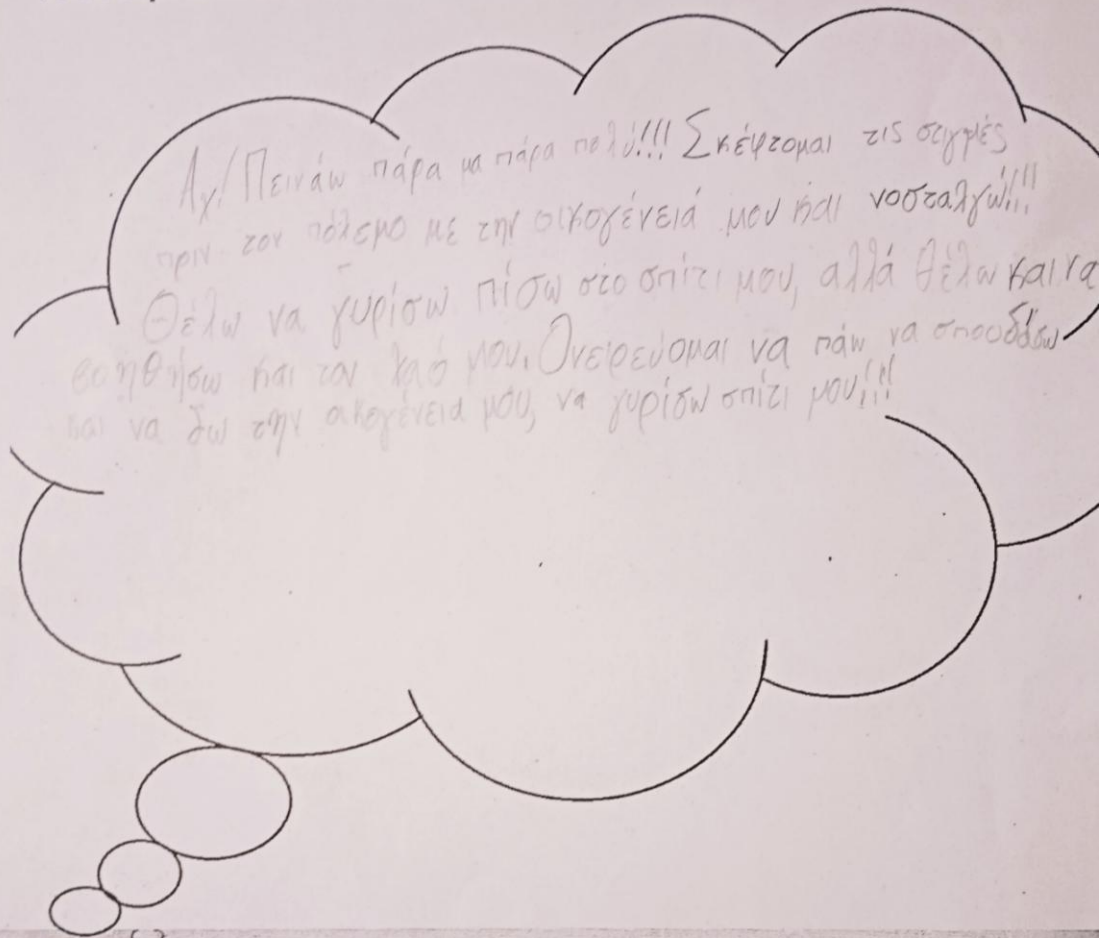 Αχ! Πεινάω πάρα μα πάρα πολύ!!! Σκέφτομαι τις στιγμές
πριν τον πόλεμο με την οικογένειά μου και νοσταλγώ!!!
Θέλω να γυρίσω πίσω στο σπίτι μου, αλλά θέλω και να
βοηθήσω και τον λαό μου. Ονειρεύομαι να πάω να σπουδάσω
και να δω την οικογένεια μου, να γυρίσω σπίτι μου!!!